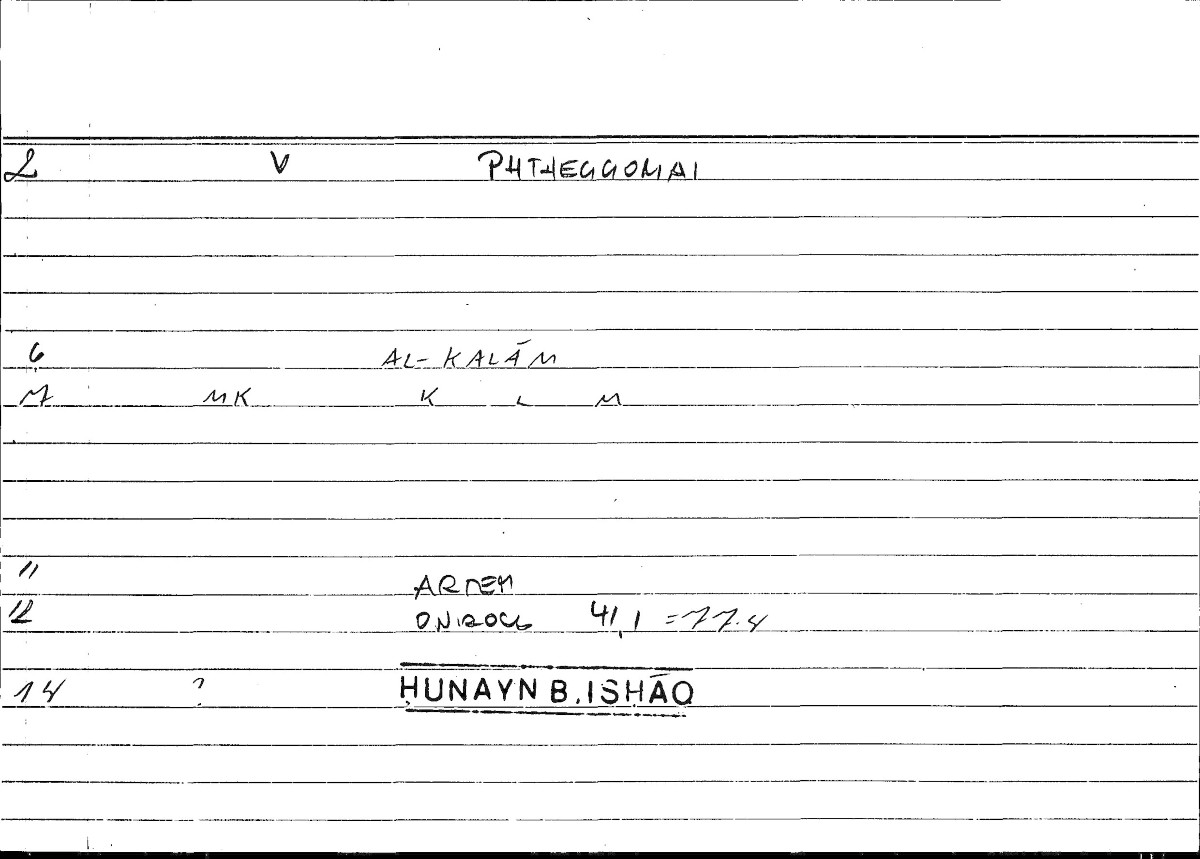 2 V PHTHEGGOMAI
6 AL-KALĀM
7 MK K L M
11 ARTEM
12 ONIROCR 41,1 =77.4
14 ? ḤUNAYN B. ISḤĀQ